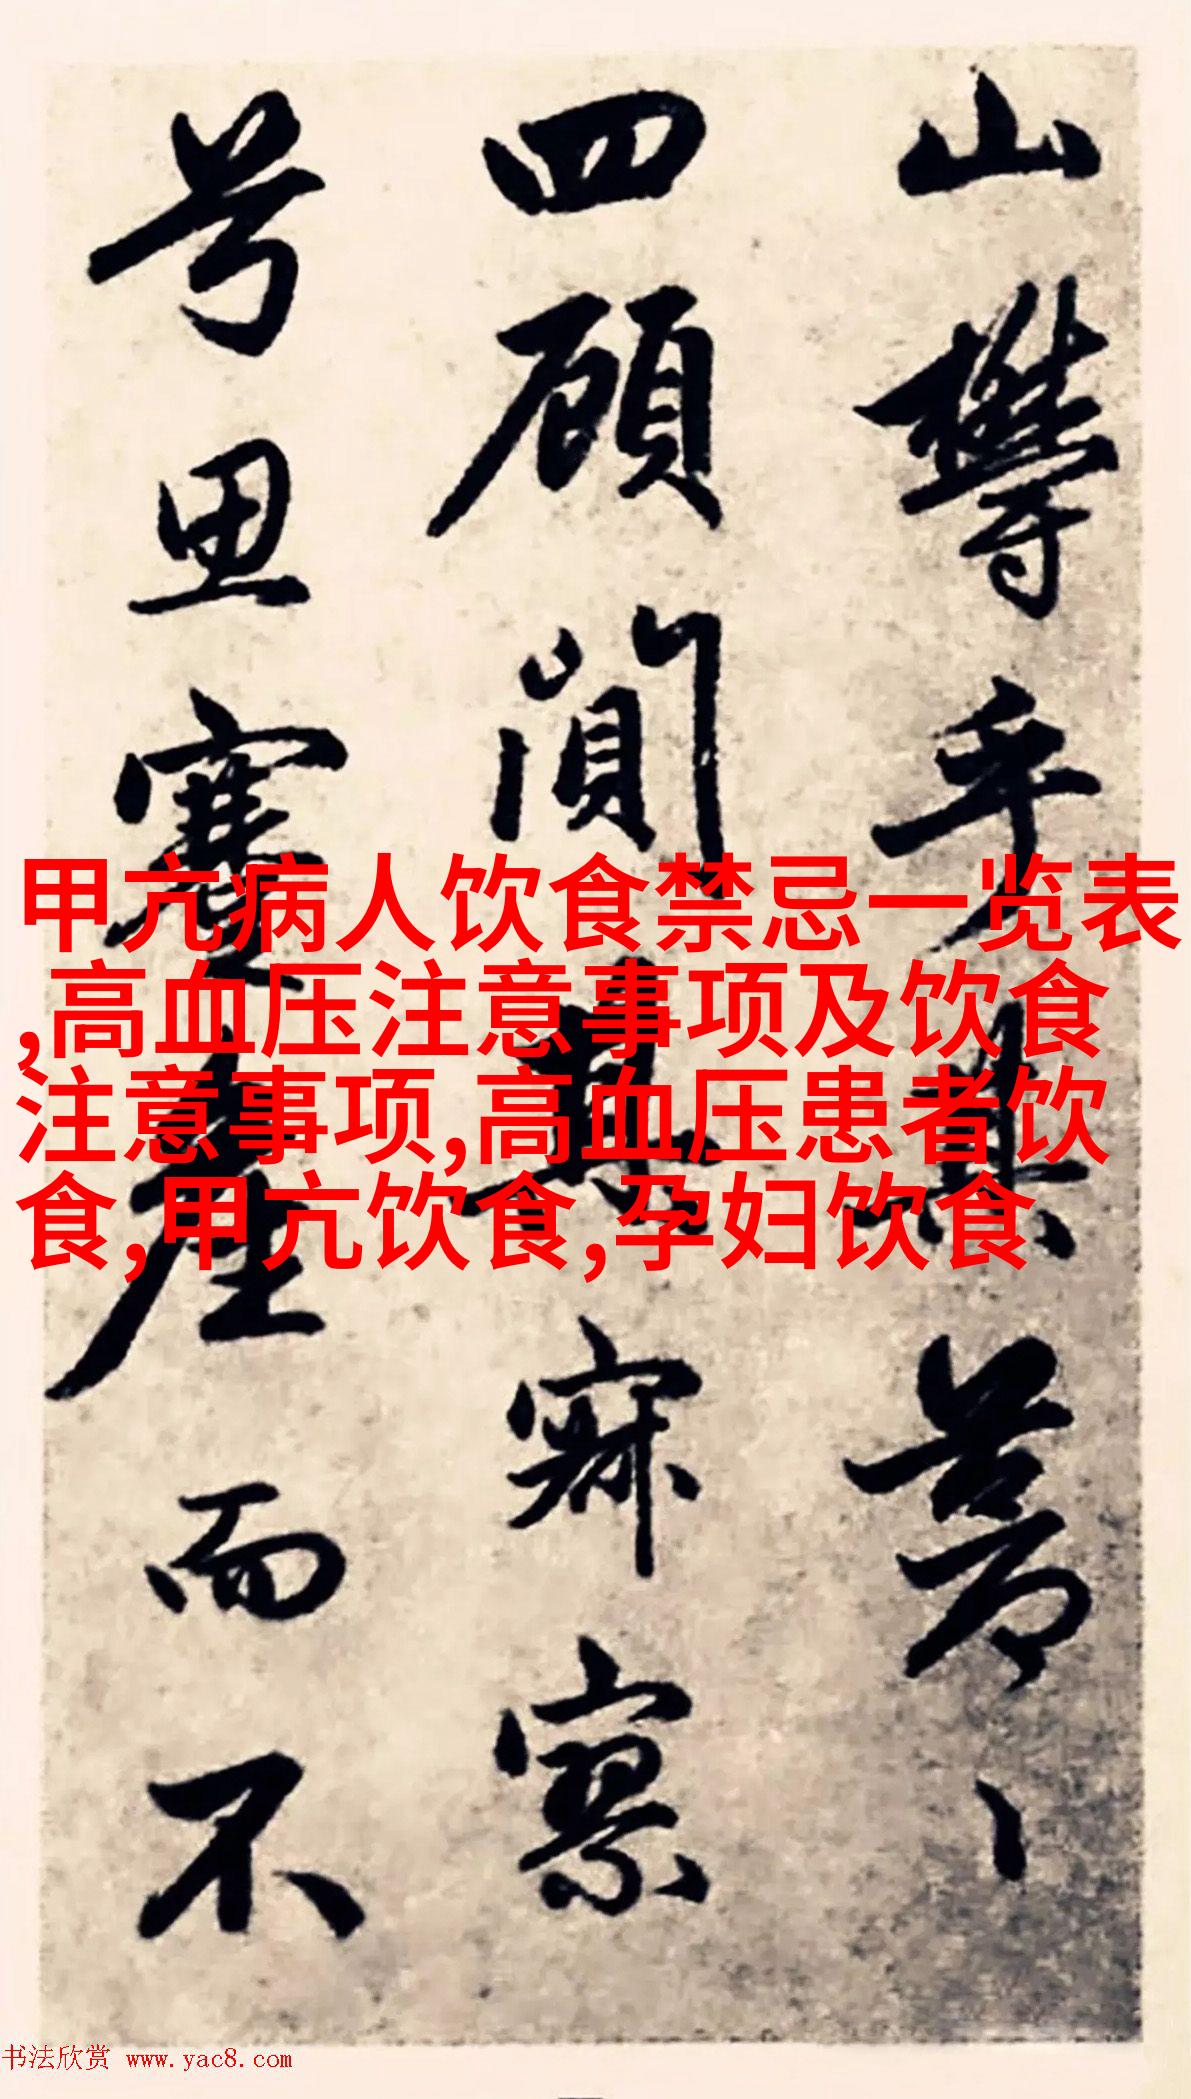 山欝乎其蒼〻
四顧闃其寂寥
兮思蹇產而不
甲亢病人饮食禁忌一览表
,高血压注意事项及饮食
注意事项,高血压患者饮
食,甲亢饮食,孕妇饮食
书法欣赏 www.yac8.com